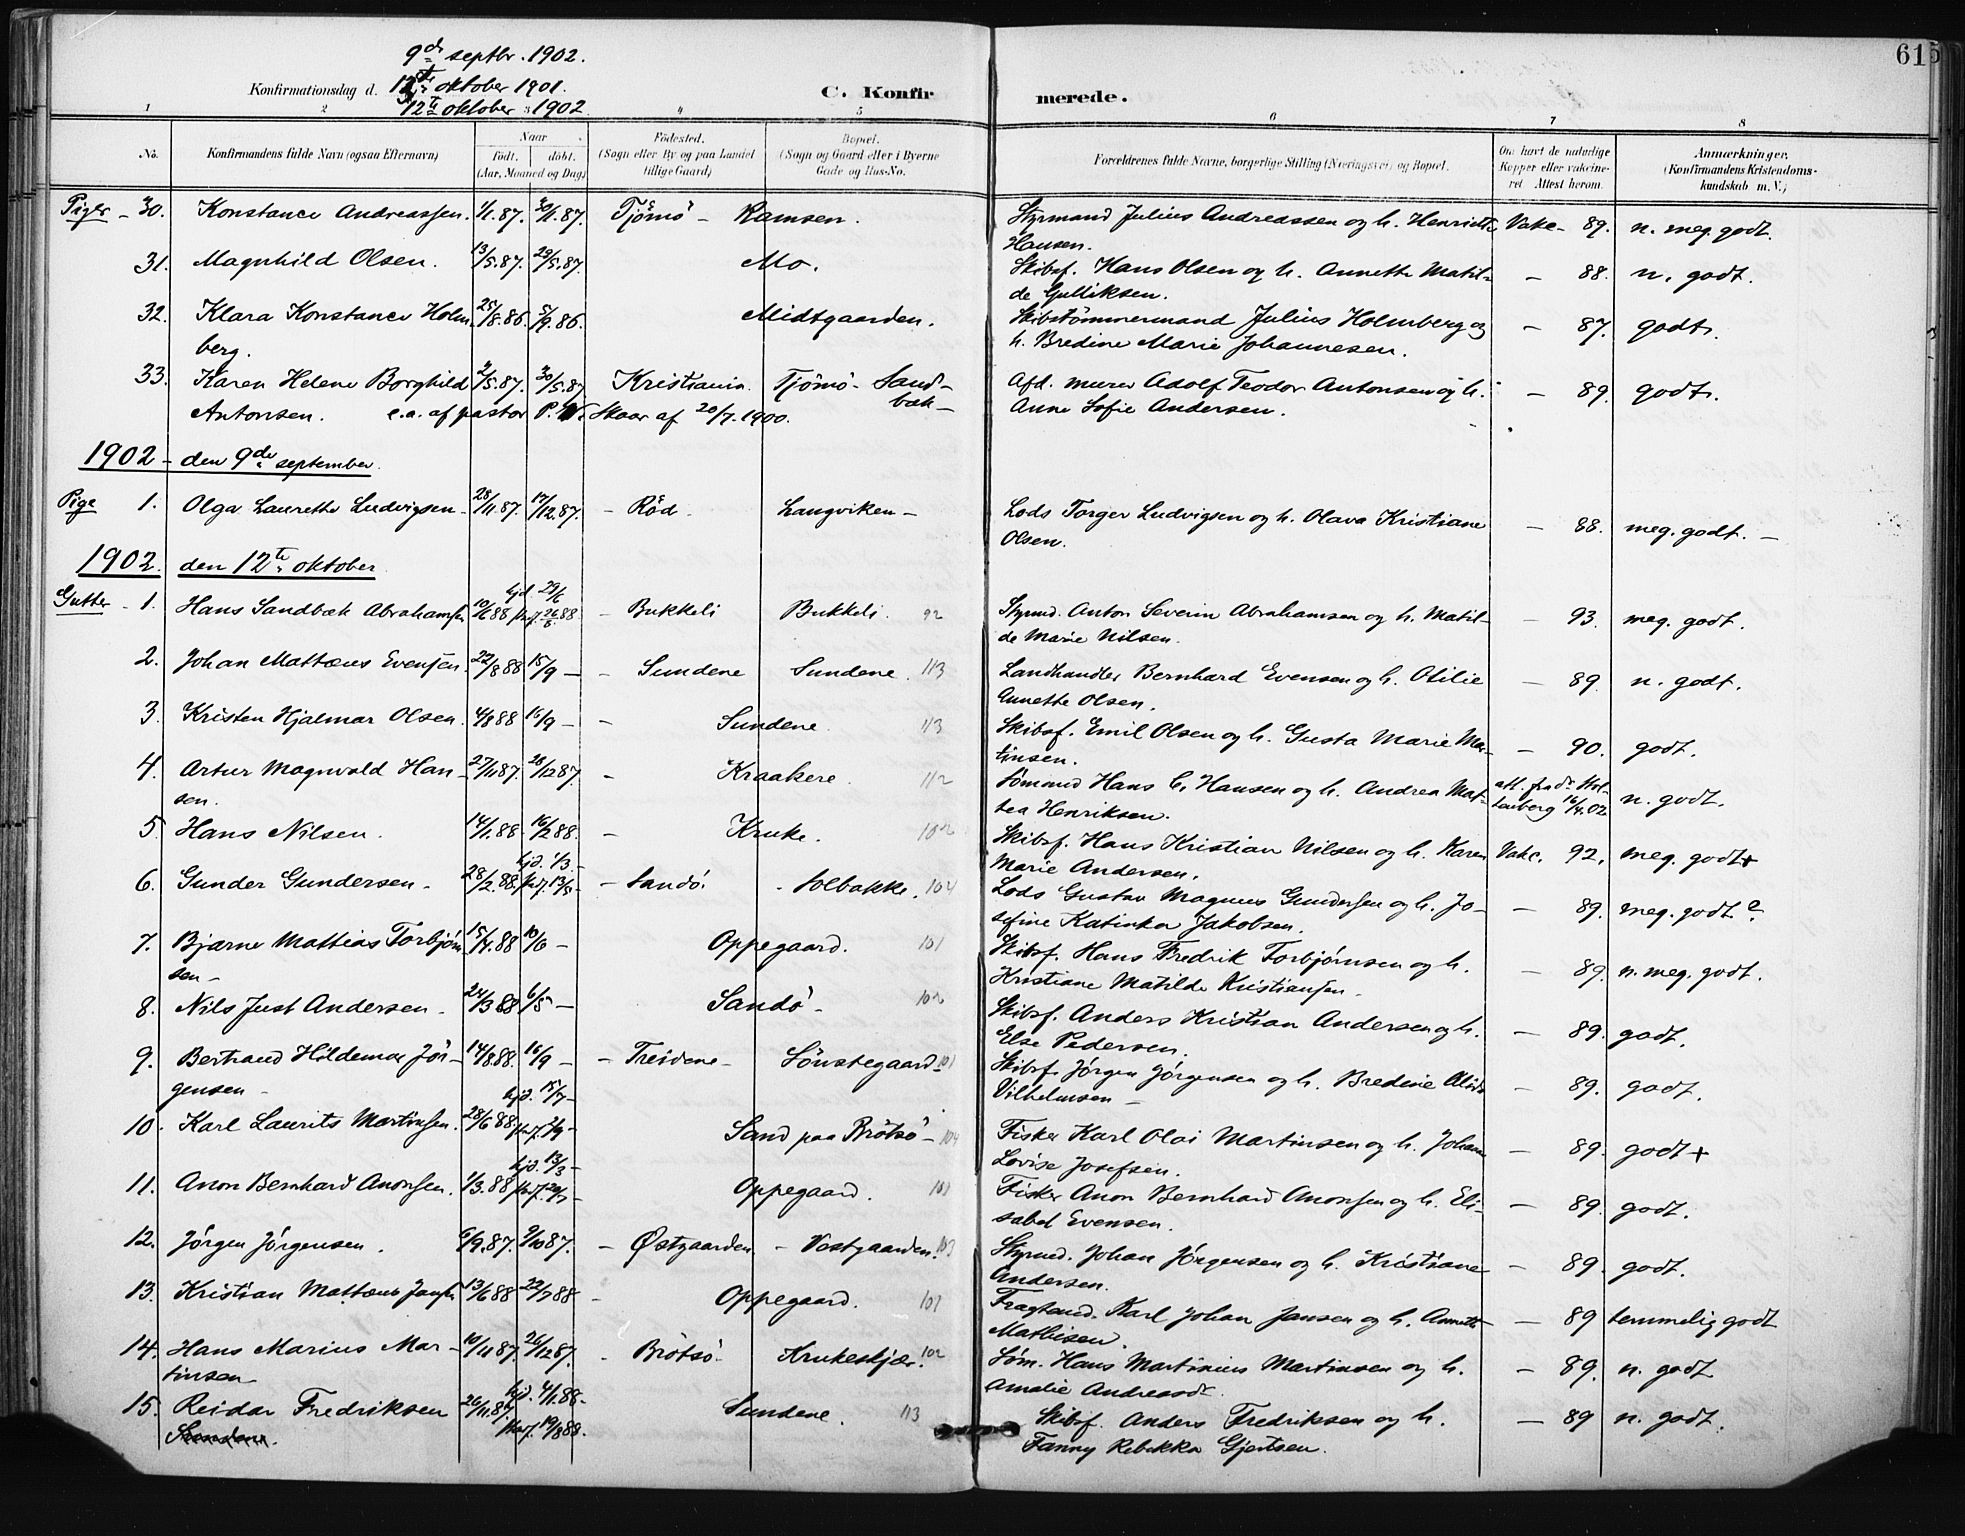 615
9de septbr. 1902.
Konfirmationsdag d. 13de oktober 1901.
12te oktober 1902
C. Konfirmerede.
1 2 3 4 5 6 7 8
No. Konfirmandens fulde Navn (ogsaa Efternavn) Naar født. døbt. (Aar, Maaned og Dag) Fødested. (Sogn eller By og paa Landet tillige Gaard) Bopæl. (Sogn og Gaard eller i Byerne Gade og Hus-No. Forældrenes fulde Navne, borgerlige Stilling (Næringsvei) og Bopæl. Om havt de naturlige Kopper eller vakcineret. Attest herom. Anmærkninger. (Konfirmandens Kristendomskundskab m. V.)
Piger - 30. Konstance Andreassen. 1/1.87. 30/1.87. Tjömö - Ramsen. Styrmand Julius Andreassen og h. Henriette Vakc - 89. n. meg. godt.
Hansen.
31. Magnhild Olsen. 13/5.87. 29/5.87. Mo. Skibsf. Hans Olsen og h. Annette Matil- — 88. n. godt.
de Gulliksen.
32. Klara Konstance Holm 25/8.86. 5/9.86. Midtgaarden. Skibstömmermand Julius Holmberg og — 87. godt.
berg. h. Bredine Marie Johannesen.
33. Karen Helene Borghild 2/5.87. 30/5.87 Kristiania. Tjömö - Sand- Afd. murer Adolf Teodor Antonsen og h. — 89. godt.
bæk -
Antonsen. e.a. af pastor P. Skaar af 20/7.1900. Anne Sofie Andersen.
1902 - den 9de september.
Pige 1. Olga Laurette Ludvigsen - 28/11.87. 17/12.87. - Röd. Langviken - Lods Torger Ludvigsen og h. Olava Kristiane — 88. meg. godt. —
Olsen.
1902. den 12te oktober.
Gutter - 1. Hans Sandbæk Abrahamsen 10/6 88 hjd. 29/6 præs. 26/8.88 - Bukkeli Bukkeli. 92 Styrmd. Anton Severin Abrahamsen og h. Matil- — 93. meg. godt.
de Marie Nilsen.
2. Johan Mattæus Evensen. 22/8 88 15/9 — - Sundene Sundene. 113 Landhandler Bernhard Evensen og h. Otilie — 89. n. godt.
Annette Olsen.
3. Kristen Hjalmar Olsen. 4/8 88 16/9 - - Sundene. 113 Skibsf. Emil Olsen og h. Gusta Marie Mar- — 90. godt.
tinsen.
4. Artur Magnvald Han- 27/11 87. 26/12 87. - Kraakere. 112 Sömand Hans C. Hansen og h. Andrea Mat- att. fra dr. Hol- n. godt.
sen. tea Henriksen. tenberg 16/4.02
5. Hans Nilsen. 14/1.88 16/2 88. - Kruke. 102 Skibsf. Hans Kristian Nilsen og h. Karen Vakc. 92. meg. godt +
Marie Andersen.
6. Gunder Gundersen - 28/2.88. hjd. 1/3 - præs. 13/5 - - Sandö. - Solbakke. 104 Lods Gustav Magnus Gundersen og h. Jo- — 89. meg. godt ?
sefine Katinka Jakobsen.
7. Bjarne Mattias Torbjørn 15/4.88 10/6 - Oppegaard. 101 Skibsf. Hans Fredrik Torbjørnsen og h. — 89. n. meg. godt.
sen - Kristiane Matilde Kristiansen -
8. Nils Just Andersen - 24/3 88 6/5 - Sandö - 102 Skibsf. Anders Kristian Andersen og h. — 89. godt.
Else Pedersen.
9. Bertrand Hildemar Jør- 14/8.88. 16/9 - - Treidene - Sönstegaard - 101 Skibsf. Jørgen Jørgensen og h. Bredine Alvide — 89. godt.
gensen - Vilhelmsen —
10. Karl Laurits Martinsen. 28/6 88. hjd. 15/7 - præs. 2/9 - Sand paa Brötsö - 104 Fisker Karl Olai Martinsen og h. Johanne — 89. godt +
Lovise Josefsen.
11. Anon Bernhard Anonsen. 1/3.88 hjd. 13/3 - præs. 29/7 - Oppegaard. 101 Fisker Anon Bernhard Anonsen og h. Eli- — 89. godt.
sabet Evensen.
12. Jørgen Jørgensen. 6/9.87. 9/10 87. - Østgaarden - Vestgaarden. 103 Styrmd. Johan Jørgensen og h. Kristiane — 89. godt.
Andersen.
13. Kristian Mattæus Jansen 13/6 88 22/7 88 - Oppegaard. 101 Fragtmd. Karl Johan Jansen og h. Annette — 89 temmelig godt
Mathisen.
14. Hans Marius Mar- 10/11 87. 26/12 87. - Brötsö - Krukeskjær. 102 Söm. Hans Martinius Martinsen og h. — 89. n. godt
tinsen - Amalie Andreasd.
15. Reidar Fredriksen 26/11.87. hjd. 4/1.88 - præs. 19/8 88. Sundene. 113 Skibsf. Anders Fredriksen og h. — 89 n. godt.
Fanny Rebekka Gjertsen.